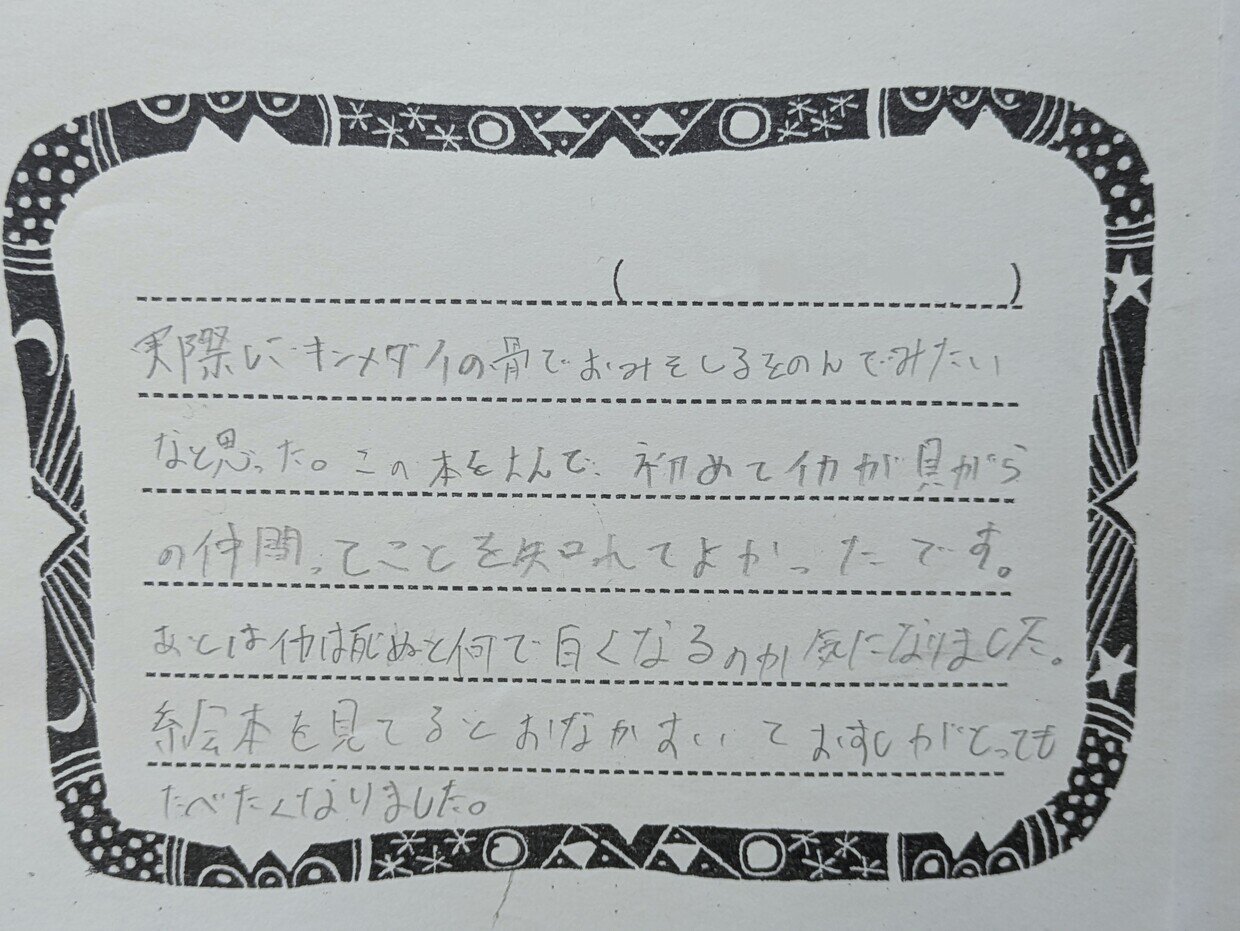 (　　　)
実際にキンメダイの骨でおみそしるをのんでみたい
なと思った。この本をよんで、初めてイカが貝から
の仲間ってことを知れてよかったです。
あとはイカは死ぬと何で白くなるのか気になりました。
絵本を見てるとおなかすいておすしがとっても
たべたくなりました。